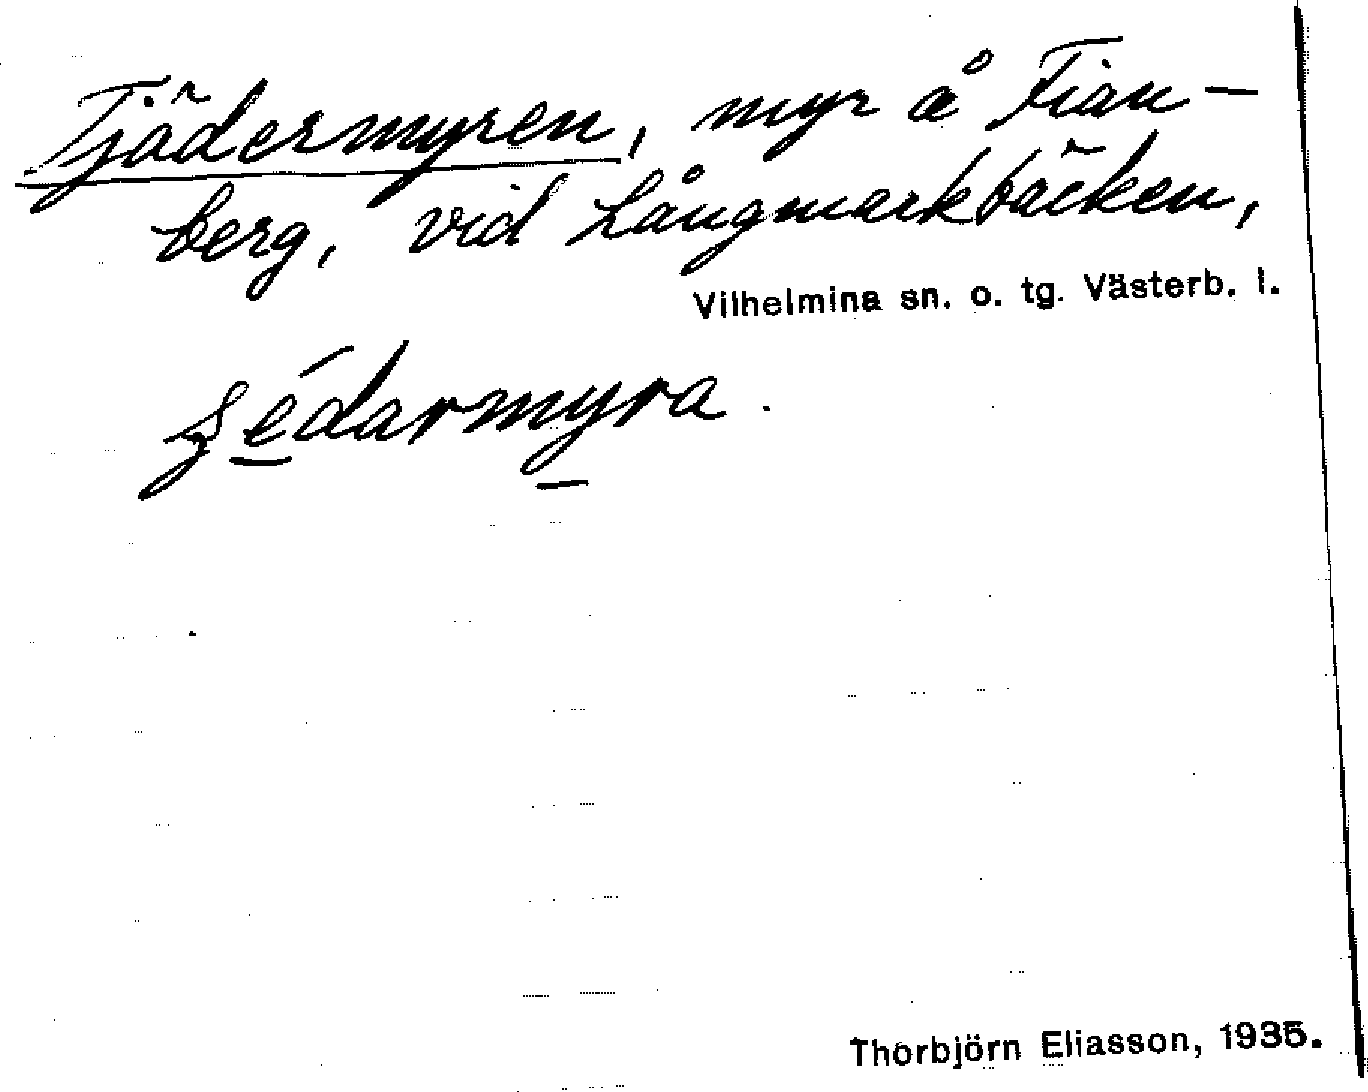 Tjädermyren, myr å Fian-
berg, vid Långmarkbäcken,
Vilhelmina sn. o. tg. Västerb. l.
édarmyra.
Thorbjörn Eliasson, 1935.